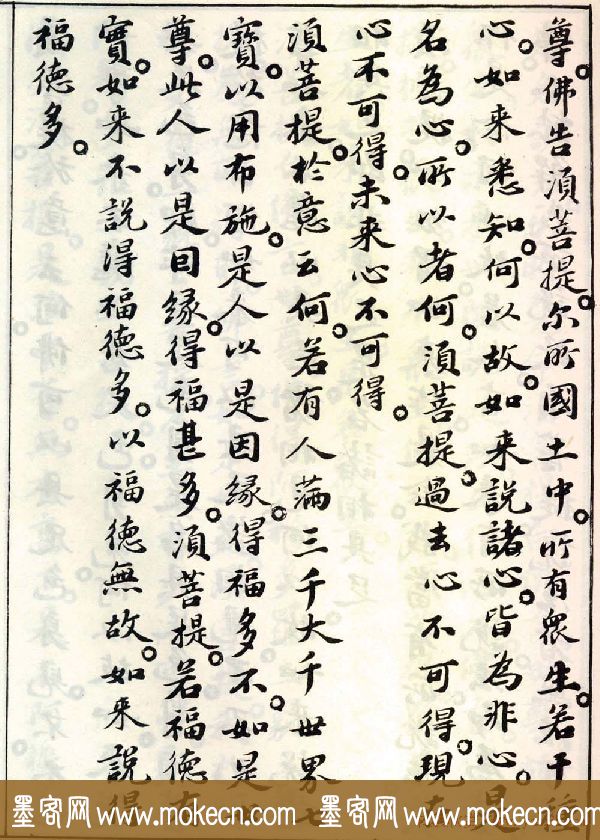 尊。佛告須菩提。尔所國土中。所有衆生。若干種
心。如来悉知。何以故。如来說諸心。皆為非心。是
名為心。所以者何。須菩提。過去心不可得。現在
心不可得。未来心不可得。
須菩提。於意云何。若有人滿三千大千世界七
寶。以用布施。是人以是因缘。得福多不。如是世
尊。此人以是囙缘。得福甚多。須菩提。若福德有
實。如来不說得福德多。以福德無故。如来說得
福德多。
墨客网 www.mokecn.com 墨客网 www.mokecn.com